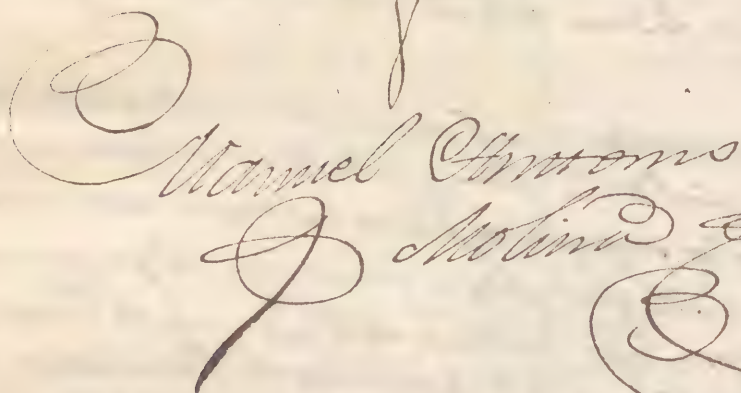 Manuel Antonio
Molina